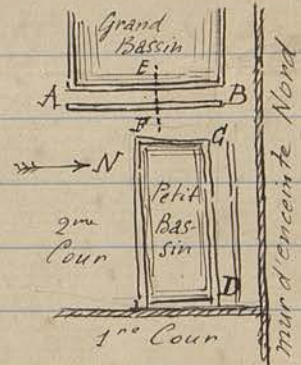 Grand
Bassin
E
A B
F G
N
Petit
Bas-
sin
2me
Cour
D
1re Cour
mur d'enceinte Nord